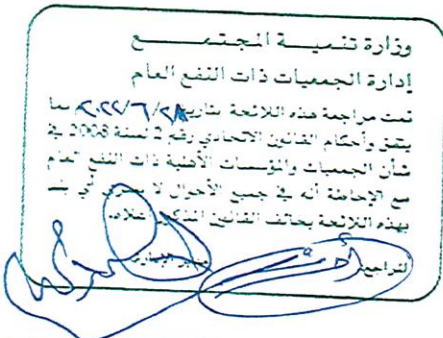 وزارة تنميــة المجتمــــع
إدارة الجمعيات ذات النفع العام
تمت مراجعة هذه اللائحة بتاريخ ٢٠٢٢/٦/٢٨ بما
يتفق وأحكام القانون الاتحادي رقم 2 لسنة 2008 في
شأن الجمعيات والمؤسسات الأهلية ذات النفع العام
مع الإحاطة أنه في جميع الأحوال لا يسري أي بند
بهذه اللائحة يخالف القانون المذكور أعلاه.
المراجع مدير الإدارة